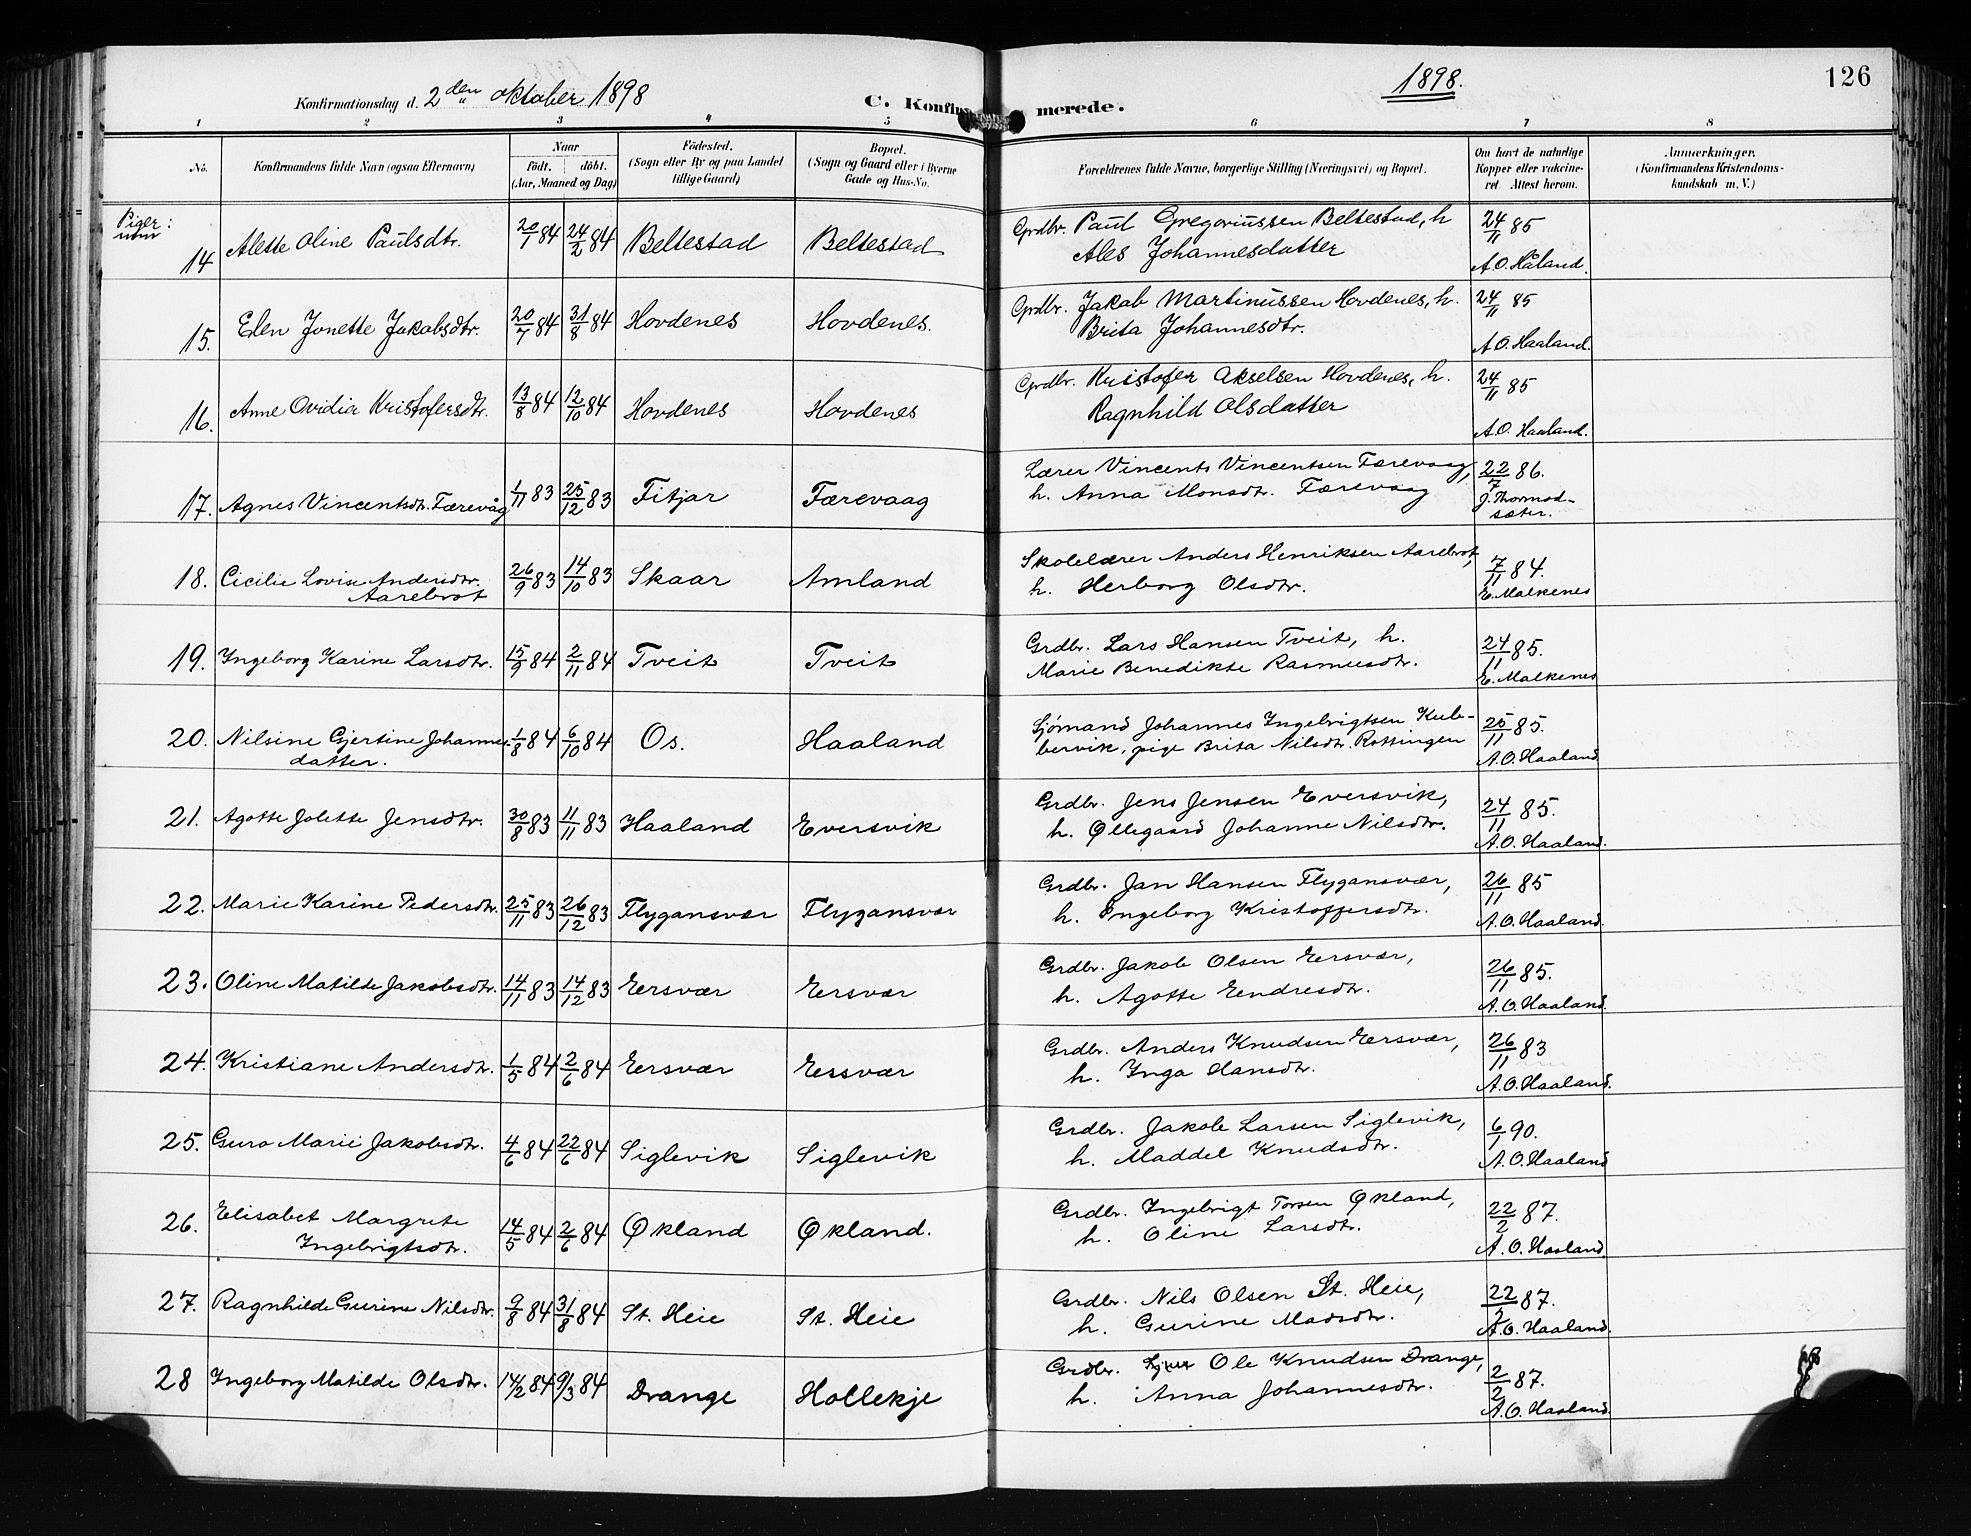 Konfirmationsdag d. 2den oktober 1898
C. Konfirmerede.
1898.
126
1 2 3 4 5 6 7 8
No.
Konfirmandens fulde Navn (ogsaa Efternavn)
Naar
födt. döbt.
(Aar, Maaned og Dag)
Födested.
(Sogn eller By og paa Landet
tillige Gaard)
Bopæl.
(Sogn og Gaard eller i Byerne
Gade og Hus-No.
Forældrenes fulde Navne, borgerlige Stilling (Næringsvei) og Bopæl.
Om havt de naturlige
Kopper eller vaccine-
ret. Attest herom.
Anmærkninger.
(Konfirmandens Kristendoms-
kundskab m. V.)
Piger:
14 Alette Oline Paulsdtr. 20/1 84 24/2 84 Beltestad Beltestad Grdbr. Paul Gregoriussen Beltestad, h 24/11 85
Ales Johannesdatter A.O. Håland.
15. Elen Jonette Jakobsdtr. 20/7 84 31/8 84 Hovdenes Hovdenes. Grdbr. Jakob Martinussen Hovdenes, h. 24/11 85
Brita Johannesdtr. A.O. Haaland.
16. Anne Ovidia Kristofersdtr. 13/8 84 12/10 84 Hovdenes Hovdenes Grdbr. Kristofer Akselsen Hovdenes, h. 24/11 85
Ragnhild Olsdatter A.O. Haaland.
17. Agnes Vincentsdtr. Færevåg 1/11 83 25/12 83 Fitjar Færevaag Lærer Vincents Vincentsen Færevaag, 22/7 86.
h. Anna Monsdtr. Færevaag J. Thormod-
sæter.
18. Cicilie Lovise Andersdtr. 26/9 83 14/10 83 Skaar Amland Skolelærer Anders Henriksen Aarebrot, 7/11 84.
Aarebrot h. Herborg Olsdtr. E. Malkenes
19. Ingeborg Karine Larsdtr. 15/9 84 2/11 84 Tveit Tveit Grdbr. Lars Hansen Tveit, h. 24/11 85.
Marie Benedikte Rasmusdtr. E. Malkenes
20. Nilsine Gjertine Johannes- 1/8 84 6/10 84 Os. Haaland Sjømand Johannes Ingebrigtsen Kule- 25/11 85.
datter. bervik, pige Brita Nilsdtr. Røttingen A.O. Haaland
21. Agotte Jolette Jensdtr. 30/8 83 11/11 83 Haaland Eversvik Grdbr. Jens Jensen Eversvik, 24/11 85.
h. Øllegaard Johanne Nilsdtr. A.O. Haaland.
22. Marie Karine Pedersdtr. 25/11 83 26/12 83 Flygansvær Flygansvær Grdbr. Jan Hansen Flygansvær, 26/11 85
h. Ingeborg Kristoffersdtr. A.O. Haaland.
23. Oline Matilde Jakobsdtr. 14/11 83 14/12 83 Eersvær Eersvær Grdbr. Jakob Olsen Eersvær, 26/11 85.
h. Agotte Eendresdtr. A.O. Haaland.
24. Kristiane Andersdtr. 1/5 84 2/6 84 Eersvær Eersvær Grdbr. Anders Knudsen Eersvær, 26/11 83
h. Inga Hansdtr. A.O. Haaland.
25. Guro Marie Jakobsdtr. 4/6 84 22/6 84 Siglevik Siglevik Grdbr. Jakob Larsen Siglevik, 6/1 90.
h. Maddel Knudsdtr. A.O. Haaland
26. Elisabet Margrete 14/5 84 2/6 84 Økland Økland. Grdbr. Ingebrigt Torsen Økland, 22/2 87.
Ingebrigtsdtr. h. Oline Larsdtr. A.O. Haaland.
27. Ragnhilde Gurine Nilsdtr. 9/8 84 31/8 84 St. Heie St. Heie Grdbr. Nils Olsen St. Heie, 22/2 87.
h. Gurine Madsdtr. A.O. Haaland.
28 Ingeborg Matilde Olsdtr. 14/2 84 9/3 84 Drange Hollekje Grdbr. Ole Knudsen Drange, 2/2 87.
h. Anna Johannesdtr. A.O. Haaland.